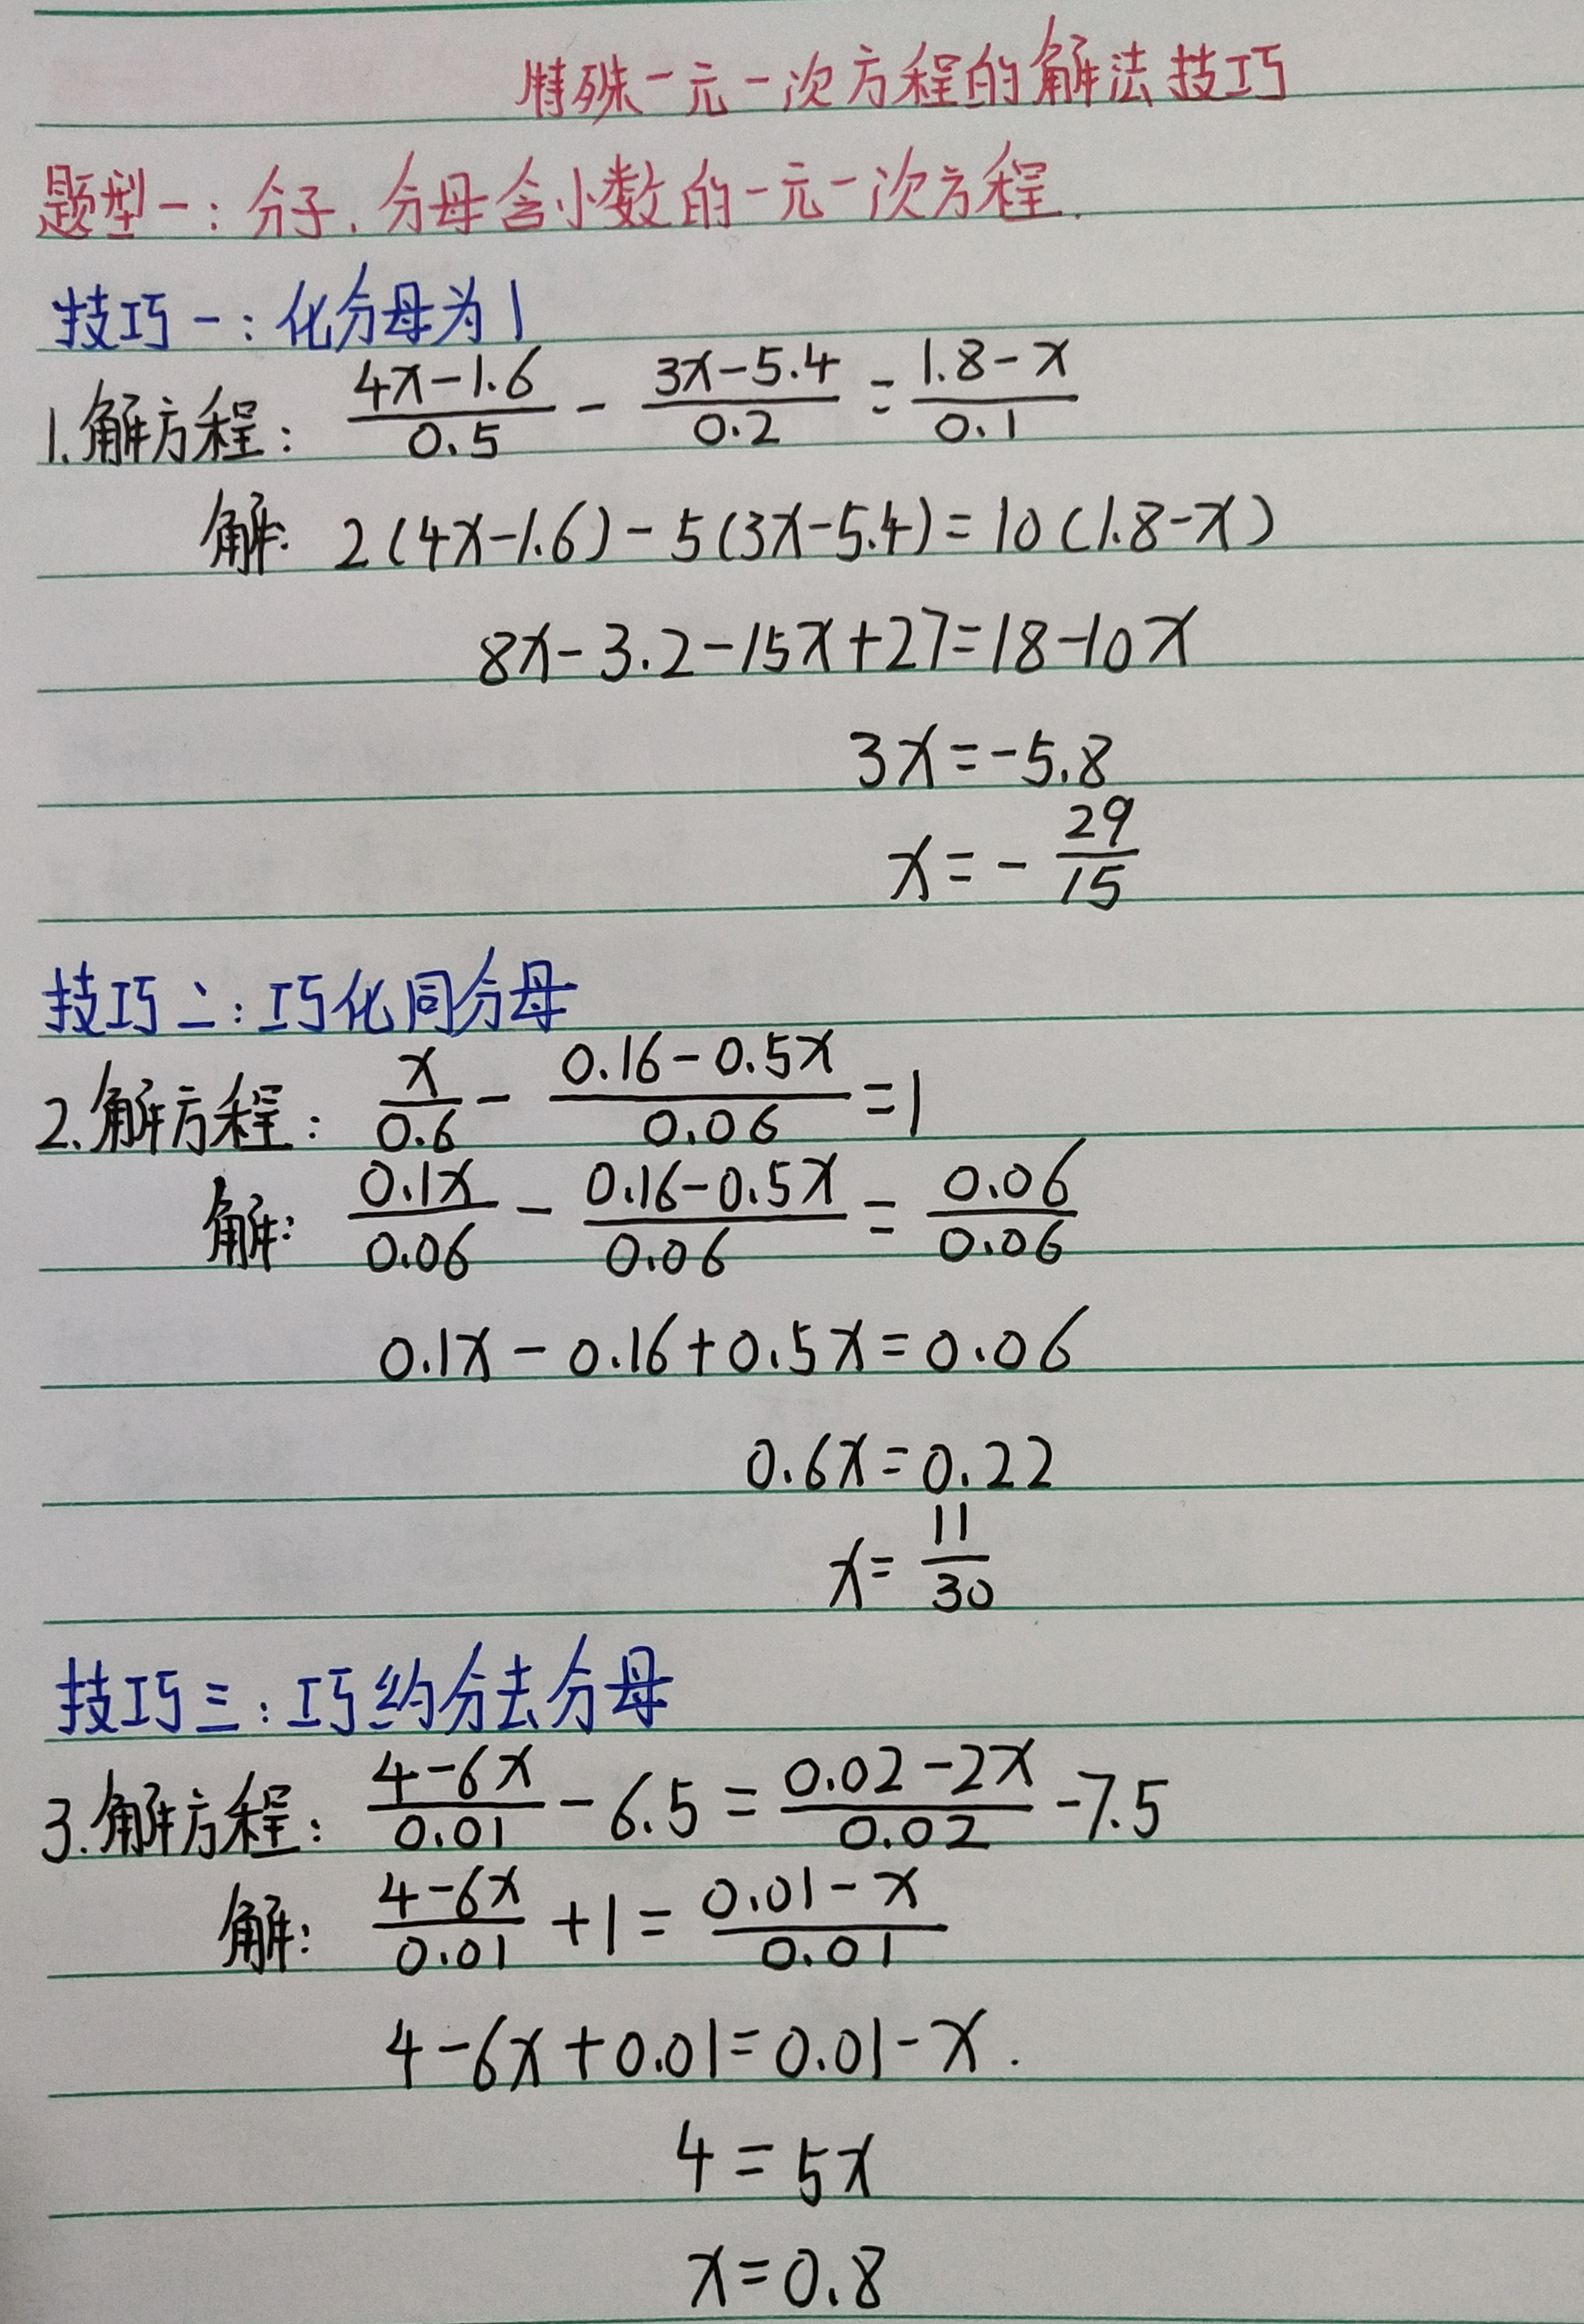 特殊一元一次方程的解法技巧
题型一：分子、分母含小数的一元一次方程.
技巧一：化分母为1
1.解方程：(4x-1.6)/0.5 - (3x-5.4)/0.2 = (1.8-x)/0.1
解：2(4x-1.6)-5(3x-5.4)=10(1.8-x)
8x-3.2-15x+27=18-10x
3x=-5.8
x=-29/15
技巧二：巧化同分母
2.解方程：x/0.6 - (0.16-0.5x)/0.06 =1
解：0.1x/0.06 - (0.16-0.5x)/0.06 = 0.06/0.06
0.1x-0.16+0.5x=0.06
0.6x=0.22
x=11/30
技巧三：巧约分去分母
3.解方程：(4-6x)/0.01 -6.5 = (0.02-2x)/0.02 -7.5
解：(4-6x)/0.01 +1= (0.01-x)/0.01
4-6x+0.01=0.01-x.
4=5x
x=0.8